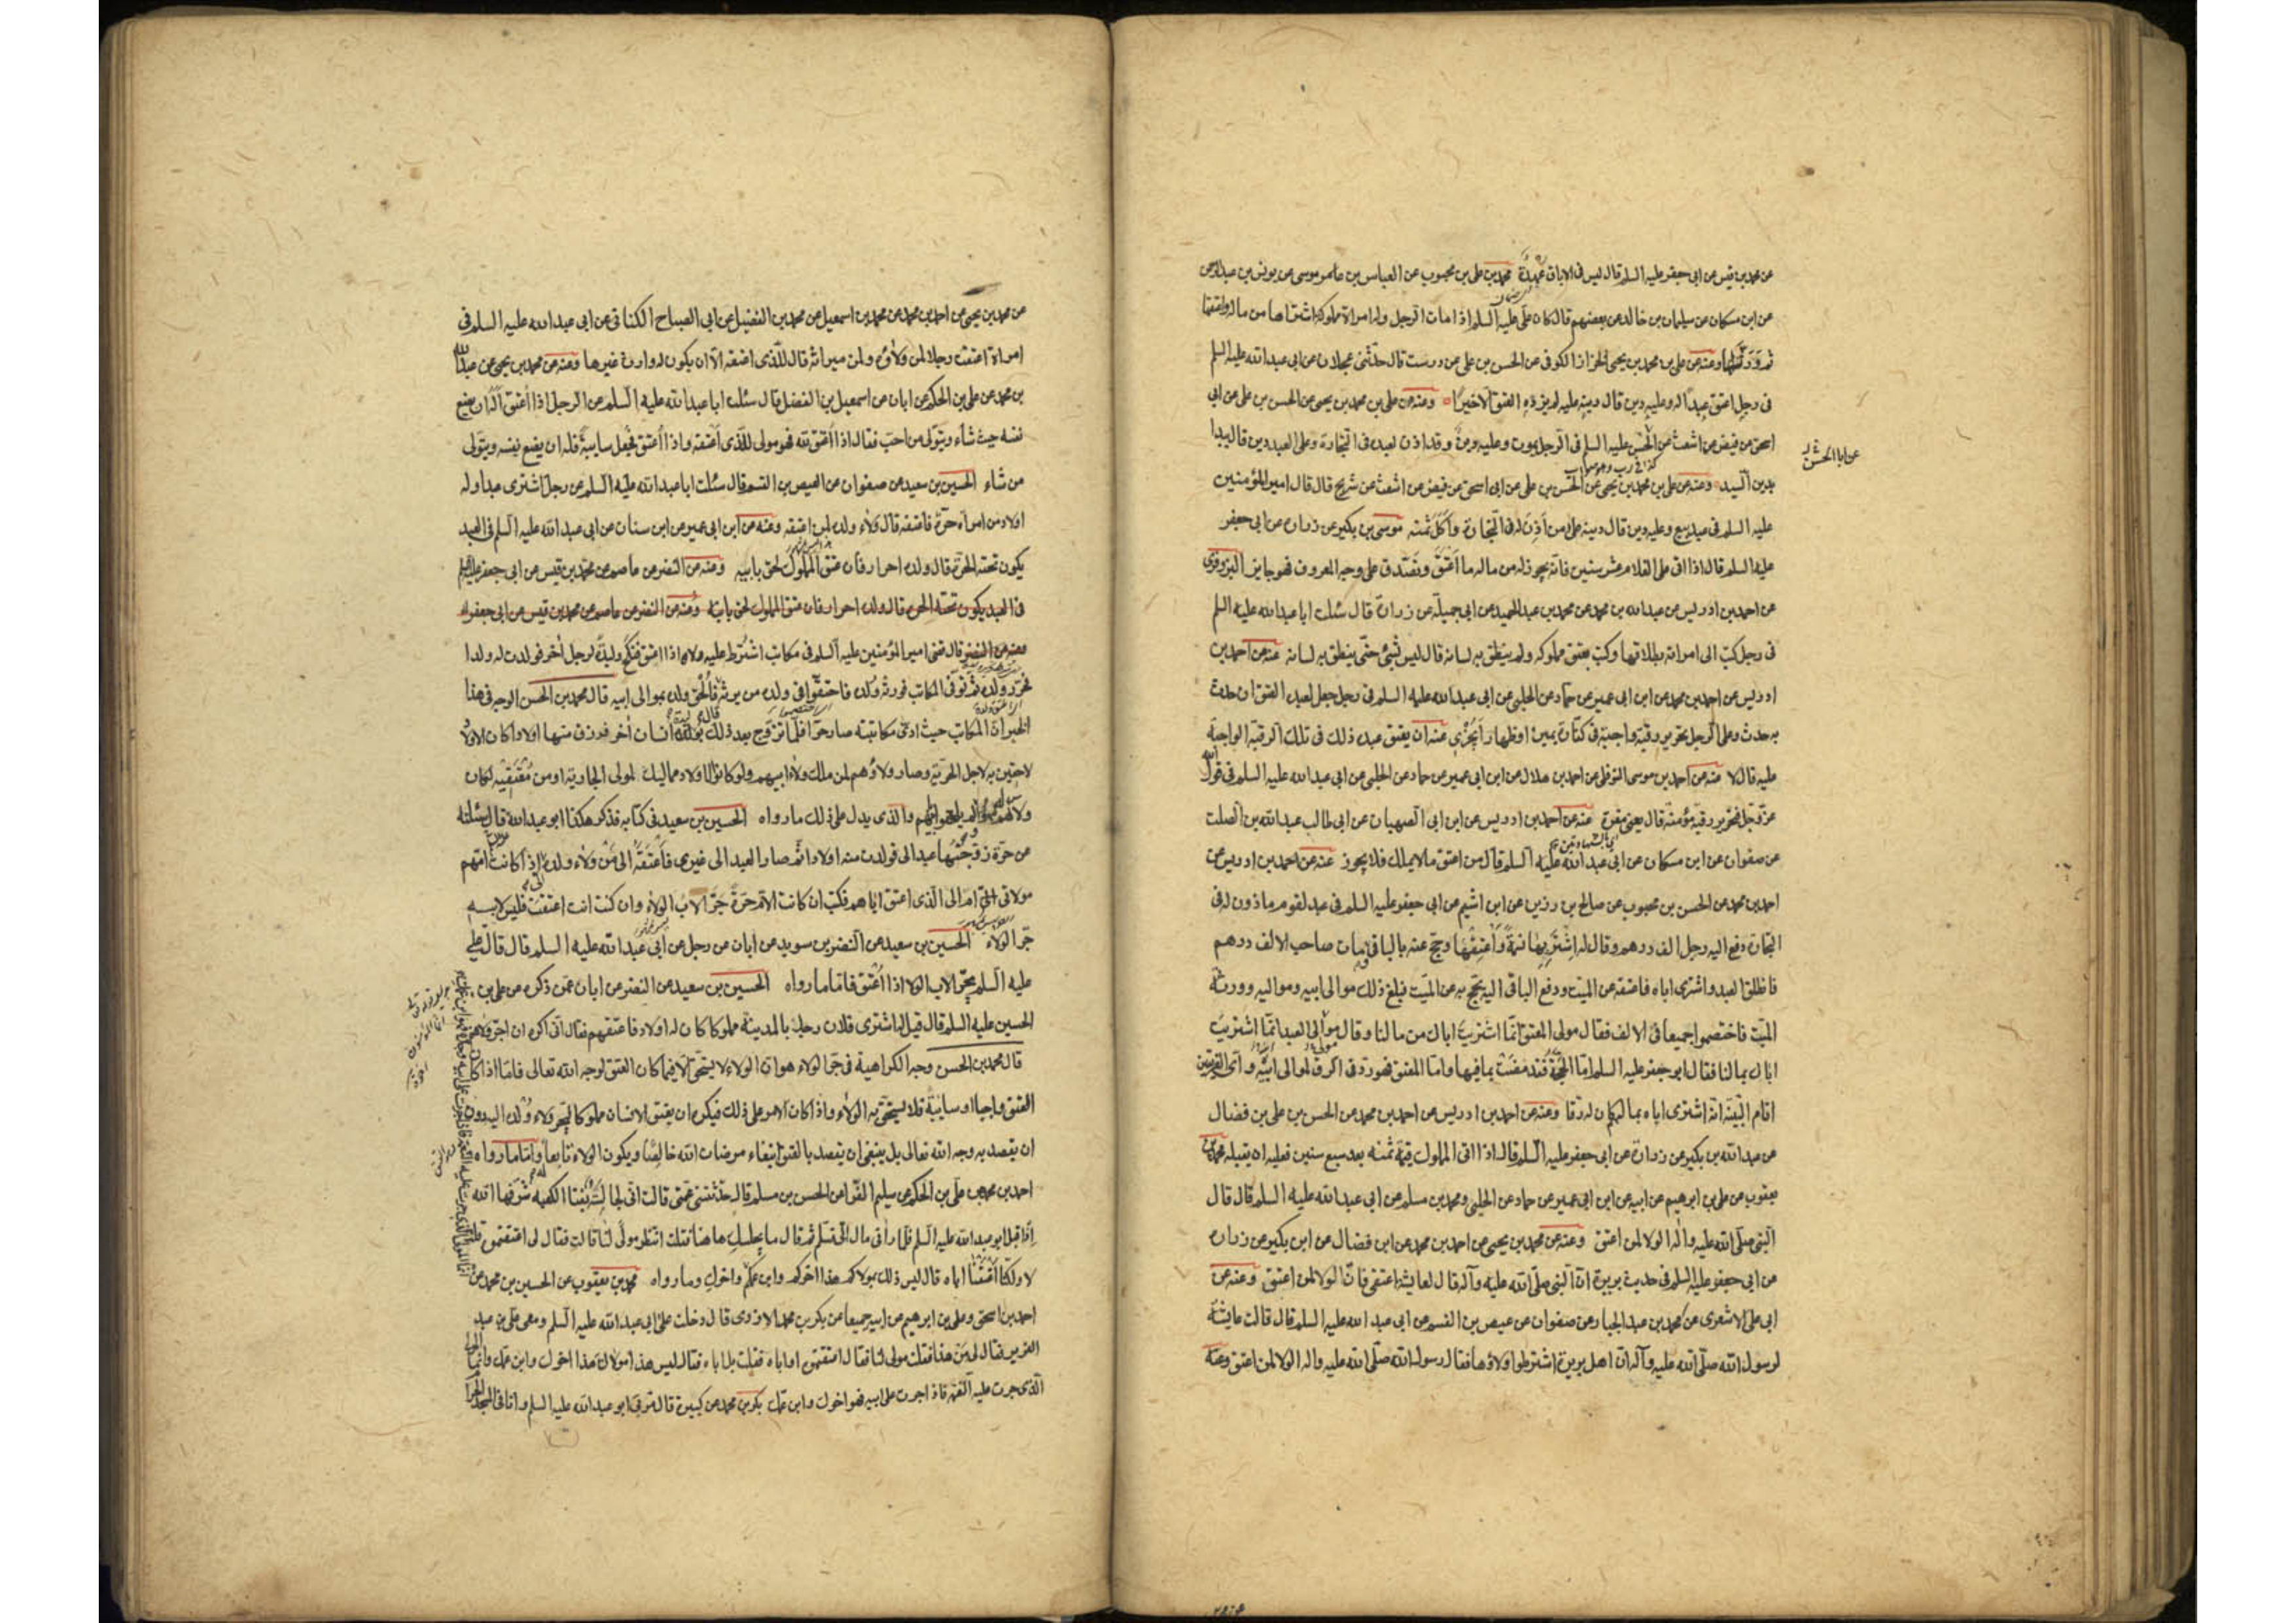 عن محمد بن قيس عن ابى جعفر عليه السلم قال ليس فى الاباق عهدة محمد بن على بن محبوب عن العباس بن عامر موسى عن يونس بن عبدالرحمن
عن ابن مسكان عن سليمان بن خالد عن بعضهم قال كان على عليه السلم اذا مات الرجل وله امراة مملوكة اشتراها من ماله واعتقها
ثم ورثها وعنه عن على بن محمد بن يحيى الخزاز الكوفى عن الحسن بن على عن درست قال حدثنى عجلان عن ابى عبد الله عليه السلم
فى رجل اعتق عبدا له وعليه دين قال دينه عليه لم يزده العتق الا خيرا وعنه عن على بن محمد بن يحيى عن الحسن بن على عن ابى
اسحق عن فيض عن اشعث عن الحسن عليه السلم فى الرجل يموت وعليه دين وقد اذن لعبده فى التجارة وعلى العبد دين قال يبدا
عن ابا الحسن
بدين السيد وعنه عن على بن محمد بن يحيى عن الحسن بن على عن ابى اسحق عن فيض عن اشعث عن شريح قال قال امير المؤمنين
عليه السلم فى عبد بيع وعليه دين قال دينه على من اذن له فى التجارة واكل ثمنه موسى بن بكير عن زراره عن ابى جعفر
عليه السلم قال اذا اتى على الغلام عشر سنين فانه يجوز له من ماله ما اعتق وتصدق على وجه المعروف فهو جايز البزوفرى
عن احمد بن ادريس عن عبد الله بن محمد عن محمد بن عبد الحميد عن ابى جميلة عن زرارة قال سئلت ابا عبد الله عليه السلم
فى رجل كتب الى امراته بطلاقها وكتب بعتق مملوكه ولم ينطق به لسانه قال ليس بشئ حتى ينطق به لسانه عنه عن احمد بن
ادريس عن احمد بن محمد عن ابن ابى عمير عن حماد عن الحلبى عن ابى عبد الله عليه السلم فى رجل جعل لعبده العتق ان حدث
به حدث وعلى الرجل تحرير رقبة واجبة فى كفارة يمين او ظهار ايجزى عنه ان يعتق عبده ذلك فى تلك الرقبة الواجبة
عليه قال لا عنه عن احمد بن موسى النوفلى عن احمد بن هلال عن ابن ابى عمير عن حماد عن الحلبى عن ابى عبد الله عليه السلم فى قول الله
عز وجل فتحرير رقبة مؤمنة قال يعنى مقرة عنه عن احمد بن ادريس عن ابن ابى الصهبان عن ابى طالب عبد الله بن الصلت
عن صفوان عن ابن مسكان عن ابى عبد الله عليه السلم قال من اعتق ما لا يملك فلا يجوز عنه عن احمد بن ادريس عن
احمد بن محمد عن الحسن بن محبوب عن صالح بن رزين عن ابن اشيم عن ابى جعفر عليه السلم فى عبد لقوم ماذون له فى
التجارة دفع اليه رجل الف درهم وقال له اشتر بها نسمة واعتقها وحج عنه بالباقى مات صاحب الالف درهم
فانطلق العبد واشترى اباه فاعتقه عن الميت ودفع الباقى اليه يحج به عن الميت فبلغ ذلك موالى ابيه ومواليه وورثة
الميت فاختصموا جميعا فى الالف فقال مولى المعتق انما اشتريت اباك من مالنا وقال موالى العبد انما اشتريت
اباك بمالنا فقال ابو جعفر عليه السلم اما الحجة فقد مضت بما فيها واما المعتق فهو رد فى الرق لموالى ابيه واى الفريقين
اقام البينة انه اشترى اباه بمالهم كان له رقا وعنه عن احمد بن ادريس عن احمد بن محمد عن الحسن بن على بن فضال
عن عبد الله بن بكير عن زرارة عن ابى جعفر عليه السلم قال اذا اتى المملوك قيمة ثمنه بعد سبع سنين فعليه ان يقبله محمد بن
يعقوب عن على بن ابرهيم عن ابيه عن ابن ابى عمير عن حماد عن الحلبى ومحمد بن مسلم عن ابى عبد الله عليه السلم قال قال
النبى صلى الله عليه واله الولا لمن اعتق وعنه عن محمد بن يحيى عن احمد بن محمد عن ابن فضال عن ابن بكير عن زراره
عن ابى جعفر عليه السلم فى حديث بريرة ان النبى صلى الله عليه وآله قال لعايشة اعتقى فان الولا لمن اعتق وعنه عن
ابى على الاشعرى عن محمد بن عبد الجبار عن صفوان عن عيص بن القسم عن ابى عبد الله عليه السلم قال قالت عايشة
لرسول الله صلى الله عليه وآله ان اهل بريرة اشترطوا ولاؤها فقال رسول الله صلى الله عليه واله الولا لمن اعتق وعنه
عن محمد بن يحيى عن احمد بن محمد عن محمد بن اسمعيل عن محمد بن الفضيل عن ابى الصباح الكنانى عن ابى عبد الله عليه السلم فى
امراة اعتقت رجلا لمن ولاؤه ولمن ميراثه قال للذى اعتقه الا ان يكون له وارث غيرها وعنه عن محمد بن يحيى عن عبد الله
بن محمد عن على بن الحكم عن ابان عن اسمعيل بن الفضل قال سئلت ابا عبد الله عليه السلم عن الرجل اذا اعتق اله ان يضع
نفسه حيث شاء ويتولى من احب فقال اذا اعتق لله فهو مولى للذى اعتقه واذا اعتق فجعل سايبة فله ان يضع نفسه ويتولى
من شاء الحسين بن سعيد عن صفوان عن العيص بن القسم قال سئلت ابا عبد الله عليه السلم عن رجل اشترى عبدا وله
اولاد من امراة حرة فاعتقه قال ولاء ولده لمن اعتقه وعنه عن ابن ابى عمير عن ابن سنان عن ابى عبد الله عليه السلم فى العبد
يكون تحته الحرة قال ولده احرار فان عتق المملوك لحق بابيه وعنه عن النضر عن عاصم عن محمد بن قيس عن ابى جعفر عليه السلم
فى العبد يكون تحته الحرة قال ولده احرار فان عتق المملوك لحق بابيه وعنه عن النضر عن عاصم عن محمد بن قيس عن ابى جعفر
وعنه عن النضر قال قضى امير المؤمنين عليه السلم فى مكاتب اشترط عليه ولاه اذا اعتق فنكح وليدة لرجل اخر فولدت له ولدا
فحرر ولده ثم توفى المكاتب فورثه ولده فاختلفوا فى ولده من يرثه فالحق ولده بموالى ابيه قال محمد بن الحسن الوجه فى هذا
الخبر ان المكاتب حيث ادى مكاتبته صار حرا فلما تزوج بعد ذلك بوليدة انسان اخر فرزق منها اولادا كان الاولاد
لاحقين به لاجل الحرية وصار ولاؤهم لمن ملك ولاء ابيهم ولو كانوا الاولاد مماليك لمولى الجارية او من معتقيه لكان
والذى يدل على ذلك ما رواه الحسين بن سعيد فى كتابه فذكر هكذا ابو عبد الله قال سئلته
عن حرة زوجتها عبدا لى فولدت منه اولادا ثم صار العبد الى غيرى فاعتقه الى من ولاء ولده اذا كانت امهم
مولاتى الى ام الى الذى اعتق اباهم فكتب ان كانت الام حرة جر الاب الولاء وان كنت انت اعتقت فليس لابيه
جر الولاء الحسين بن سعيد عن النضر بن سويد عن ابان عن رجل عن ابى عبد الله عليه السلم قال قال على
عليه السلم يجر الاب الولا اذا اعتق فاما ما رواه الحسين بن سعيد عن النضر عن ابان عمن ذكره عن على بن
الحسين عليه السلم قال قيل له اشترى فلان رجلا بالمدينة مملوكا كان له اولاد فاعتقهم فقال انى اكره ان اجر ولاءهم
قال محمد بن الحسن وجه الكراهية فى جر الولاء هو ان الولاء لا يستحق الا فيما كان العتق لوجه الله تعالى فاما اذا كان
العتق واجبا او سائبة فلا يستحق به الولاء واذا كان الامر على ذلك فيكره ان يعتق الانسان مملوكا ليجر ولاء ولده اليه دون
ان يقصد به وجه الله تعالى بل ينبغى ان يقصد بالعتق ابتغاء مرضات الله خالصا ويكون الولاء تابعا واما ما رواه
احمد بن محمد عن على بن الحكم عن سليم الفرا عن الحسن بن مسلم قال حدثتنى عمتى قالت انى لجالسة بفنا الكعبه شرفها الله
اذ اقبل ابو عبد الله عليه السلم فلما رانى مال الى فسلم ثم قال ما يجلسك هاهنا فقلت انتظر مولى لنا قالت فقال لى اعتقتموه قلت
لا ولكنا اعتقنا اباه قال ليس ذلك بمولاكم هذا اخوكم وابن عمكم واخوك وما رواه محمد بن يعقوب عن الحسين بن محمد عن
احمد بن اسحق وعلى بن ابرهيم عن ابيه جميعا عن بكر بن محمد الازدى قال دخلت على ابى عبد الله عليه السلم ومعى على بن عبد
العزيز فقال لى من هذا فقلت مولى لنا فقال اعتقتموه او اباه فقلت بل اباه فقال ليس هذا مولاك هذا اخوك وابن عمك وانما المولى
الذى جرت عليه النعمة فاذا جرت على ابيه فهو اخوك وابن عمك بكر بن محمد عن كبيرة قال مر بى ابو عبد الله عليه السلم وانا فى المسجد الحرام